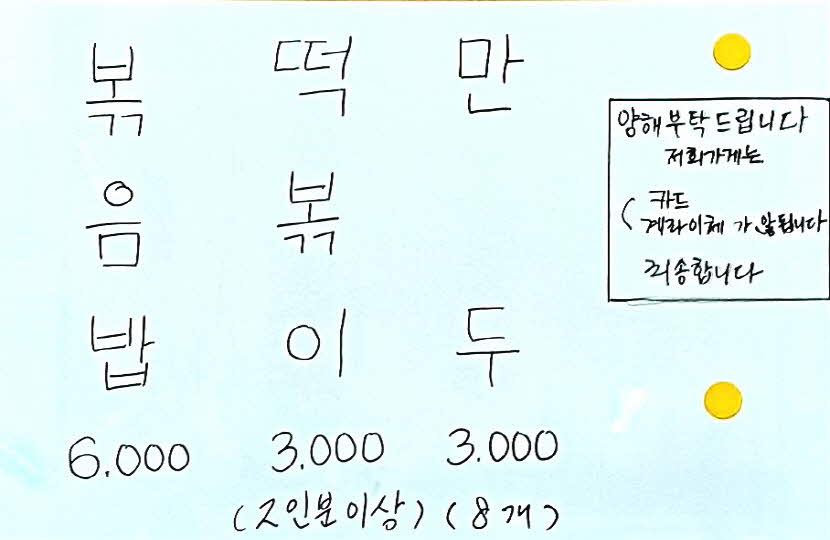 볶음밥
6.000
떡볶이
3.000
(2인분이상)
만두
3.000
(8개)
양해부탁드립니다
저희가게는
( 카드
계좌이체 가 않됩니다
죄송합니다